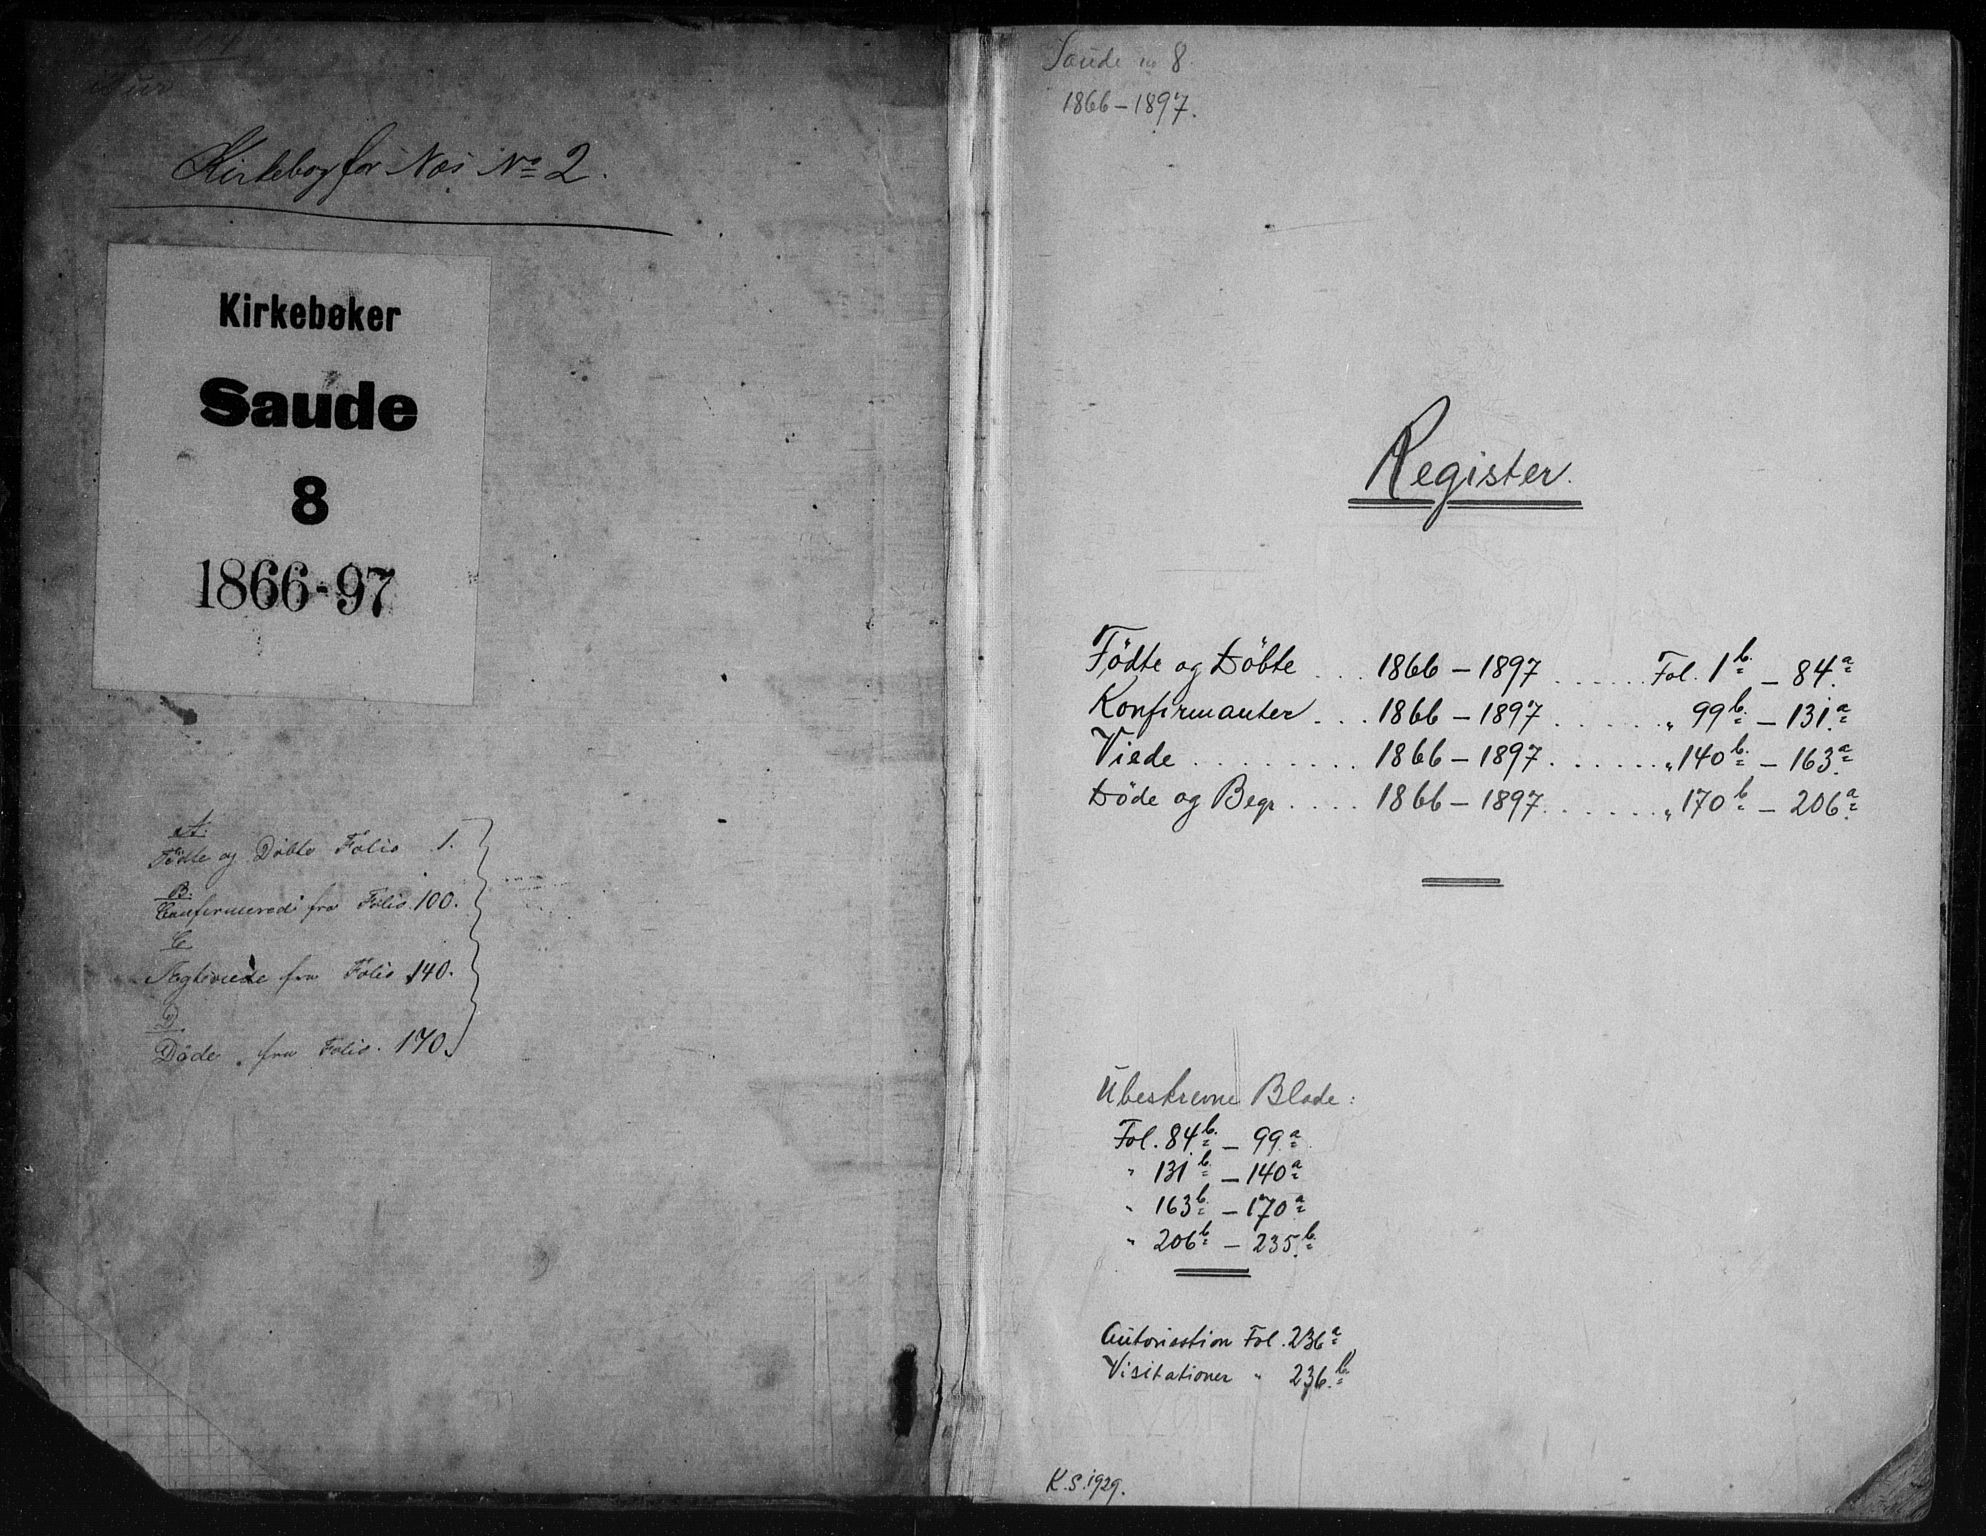 Kirkebog for Næs No 2.
Kirkebøker
Saude
8
1866-97
A.
Födte og Döbte Folio 1.
B.
Confirmerede fra Folio 100.
C
Ægteviede fra Folio 140.
D.
Döde fra Folio 170.
Saude 8.
1866-1897.
Register.
Födte og Döbte ... 1866-1897 ...... Fol. 1b. - 84a
Konfirmanter ... 1866-1897 ...... " 99b. - 131a
Viede ......... 1866-1897 ...... " 140b. - 163a
Döde og Begr. .... 1866-1897 ...... " 170b. - 206a
Ubeskrevne Blade:
Fol. 84b. - 99a
" 131b. - 140a
" 163b. - 170a
" 206b. - 235b.
Autorisation Fol. 236a
Visitationer " 236b.
K.S. 1929.